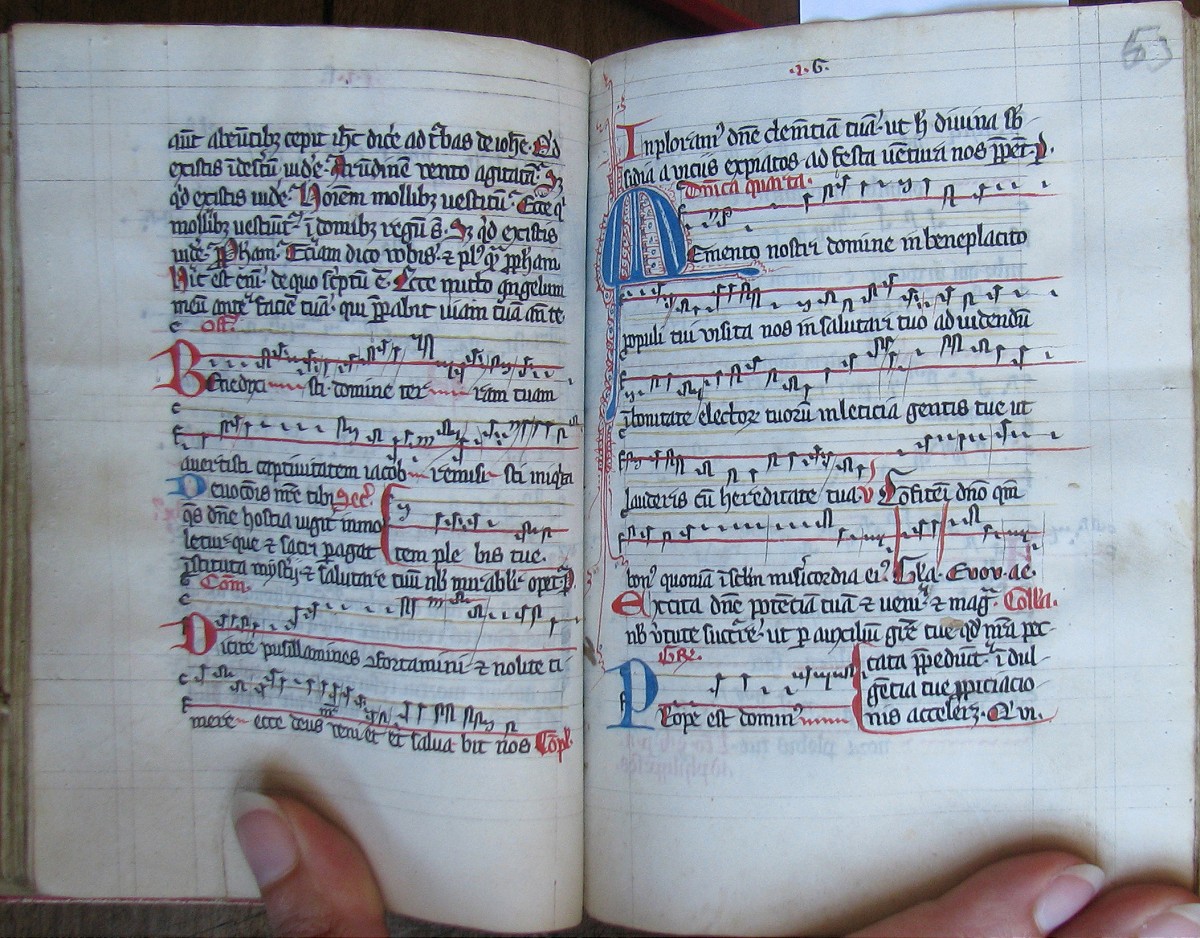 aūt abeūtibꝫ cepit ihc̄ dic̄e ad t̄bas de ioh̄e. Qd
existis ī desertū uide᷑e. Arūdinē vento agitatā. Sꝫ
qd existis uide᷑. hoīem mollibꝫ uestitū. Ecce q̇
mollibꝫ uestiūt᷑ ī domibꝫ regū s̄. Sꝫ qd existis
uide᷑. Ꝓpham. Etiam dico vobis. ⁊ pl᷒ q̄ ꝓpham
hic est eni᷒ de quo sc̄ptū ē. Ecce mitto angelum
meū ante faciē tuā. qui p̄parabit uiam tuā ante
Off.
Benedixi sti domine ter ram tuam
auertisti captiuitatem iacob remisi sti iniqta
Deuocōis nr̄e tibi Sec̄.
qs dn̄e hostia iugit᷑ inmo
letur que ⁊ sac̄i ꝑagat
tem ple bis tue.
īstituta mystīi ⁊ salutar̄e tuū nb̄ mirabilr̄ opet᷑. P.
Com̄.
Dicite pusillamines ꝯfortamini ⁊ nolite ti
mere ecce deus veniet et salua bit nos Cōpl̄.
.2. G.
63
Inploram᷒ dn̄e clemētiā tuā. ut h̄ diuina sb̄
sidia a viciis expiatos ad festa uētura nos p̄pet᷑. P.
Dn̄ica quarta.
Memento nostri domine in beneplacito
populi tui visita nos in salutari tuo ad uidendū
ī bonitate electoꝝ tuorū in leticia gentis tue ut
lauderis cū hereditate tua v Cōfitēi dn̄o qm̄
bon᷒ quoniā ī sc̄lm misīcordia ei᷒. Gl̄a. Evov. ae.
Excita dn̄e potēciā tuā ⁊ ueni. ⁊ mag᷑. Coll̄a.
nb̄ v̄tute succ̄re. ut ꝑ auxiliū gr̄e tue qd nr̄a pec
cata p̄pediūt. ī dul
gētia tue ꝓpiciacio
nis acceleꝫ. Qui.
Gr̄.
Prope est domin᷒